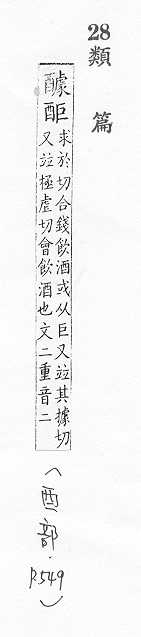 28
類篇
醵
䣰
求於切合錢飲酒或从巨又竝其據切
又竝極虛切會飲酒也文二重音二
(酉部.
P.549)